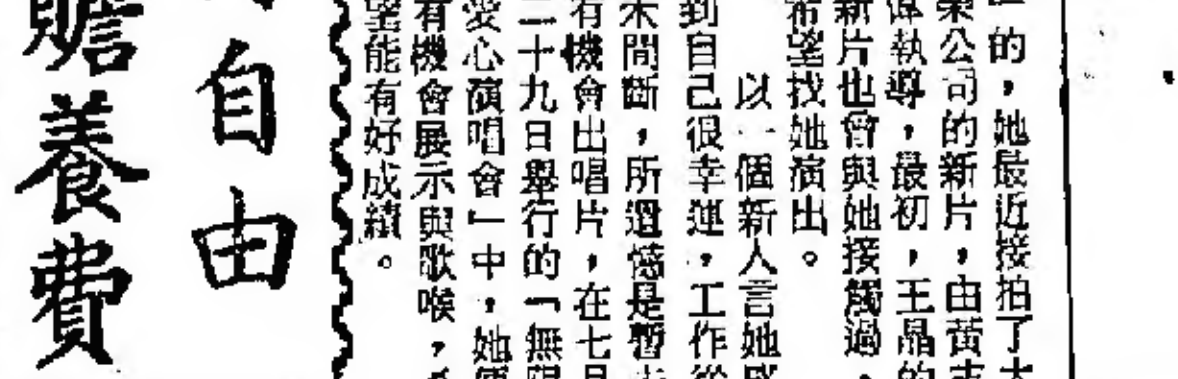 的，她最近接拍了
公司的新片，由黃志
執導，最初，王晶的
新片也曾與她接觸過，
希望找她演出。
以一個新人言她
到自己很幸運，工作從
未間斷，所遺憾是暫
有機會出唱片，在七月
二十九日舉行的「無限
愛心演唱會」中，她便
有機會展示與歌喉，
望能有好成績。
自由
贍養費